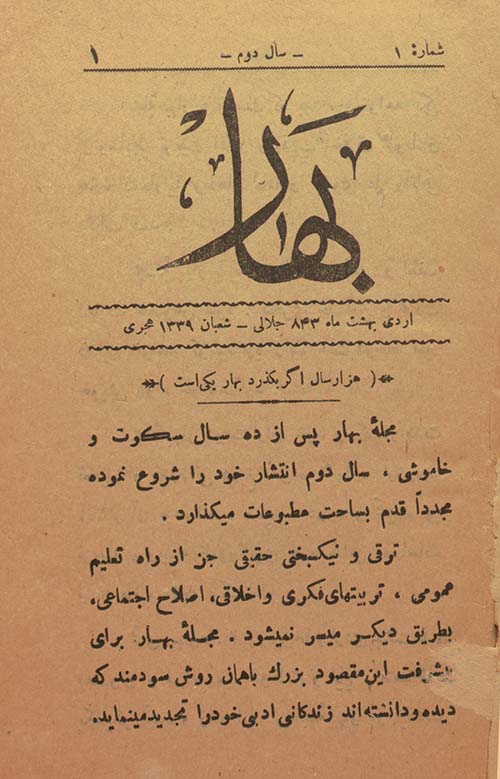 شمارهٔ ۱ – سال دوم – ۱
بهار
اردی بهشت ماه ۸۴۳ جلالی – شعبان ۱۳۳۹ هجری
( هزار سال اگر بگذرد بهار یکی است )
مجلهٔ بهار پس از ده سال سکوت و
خاموشی ، سال دوم انتشار خود را شروع نموده
مجدداً قدم بساحت مطبوعات میگذارد .
ترقی و نیکبختی حقیقی جز از راه تعلیم
عمومی ، تربیتهای فکری و اخلاقی، اصلاح اجتماعی،
بطریق دیگر میسر نمیشود . مجلهٔ بهار برای
پیشرفت این مقصود بزرك باهمان روش سودمند که
دیده و دانسته‌اند زندگانی ادبی خود را تجدید مینماید.